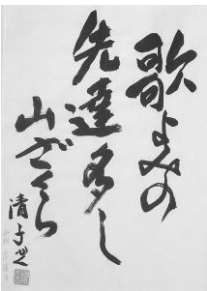 歌よみの
先達多し
山ざくら
清子